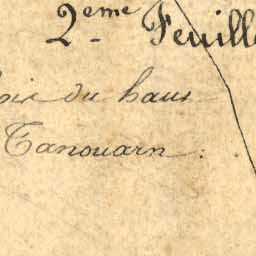 2.eme Feuill
oix du haut
Tanouarn.